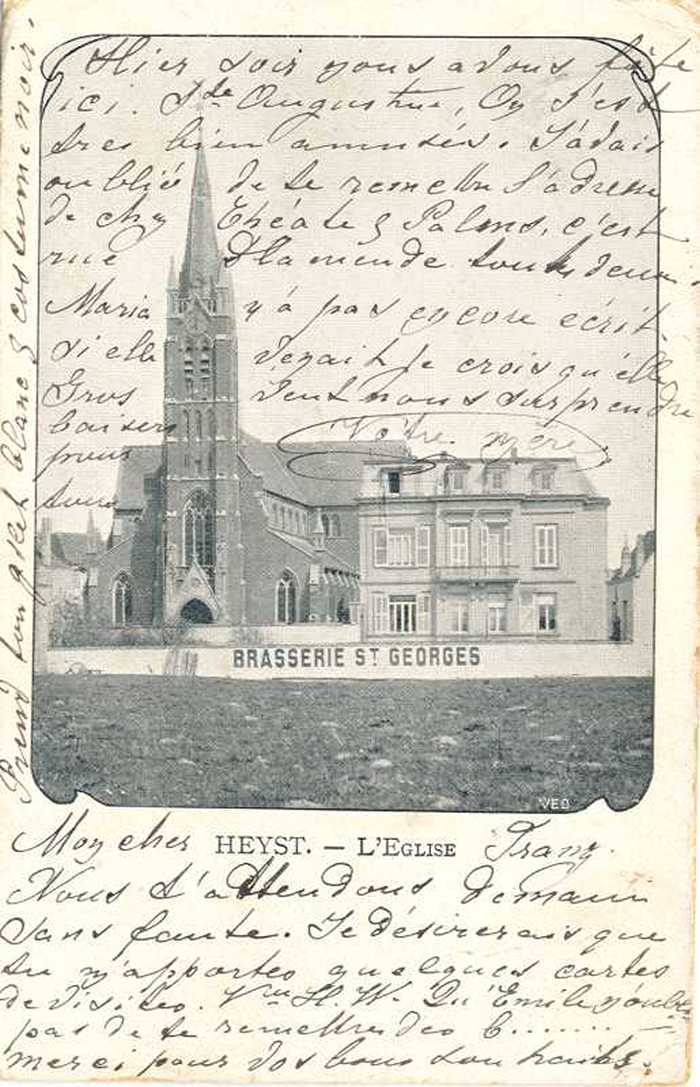 Hier soir nous avons fêté
ici. Ste Augustine, On s'est
tres bien amusés. J'avais
oublié de te remettre l'adresse
de chez Théâte Palms, c'est
rue Flamande toutes deux.
Maria n'a pas encore écrit.
si elle venait je crois qu'elle
Gros veut nous surprendre
baisers Votre mère
pour
tous
BRASSERIE ST GEORGES
VED
Prend ton gilet blanc & costume noir.
HEYST. – L'EGLISE
Mon cher Franz.
Nous t'attendons demain
sans faute. Je désirerais que
tu m'apportes quelques cartes
de visites. V. H. W. Qu'Emile n'oublie
pas de te remettre des b........ –
merci pour vos bons souhaits.